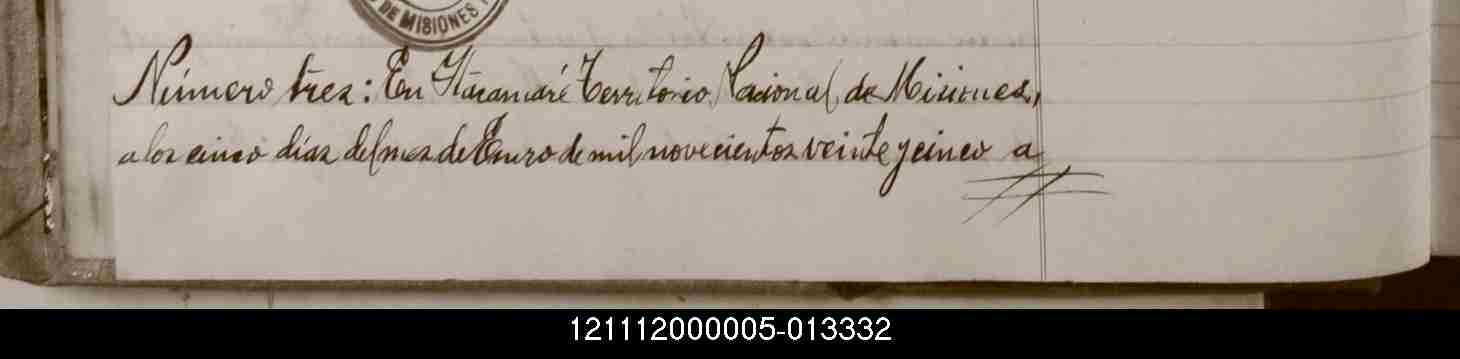 DE MISIONES
Número tres: En Itacaruaré Territorio Nacional de Misiones,
a los cinco días del mes de Enero de mil novecientos veinte y cinco a
121112000005-013332